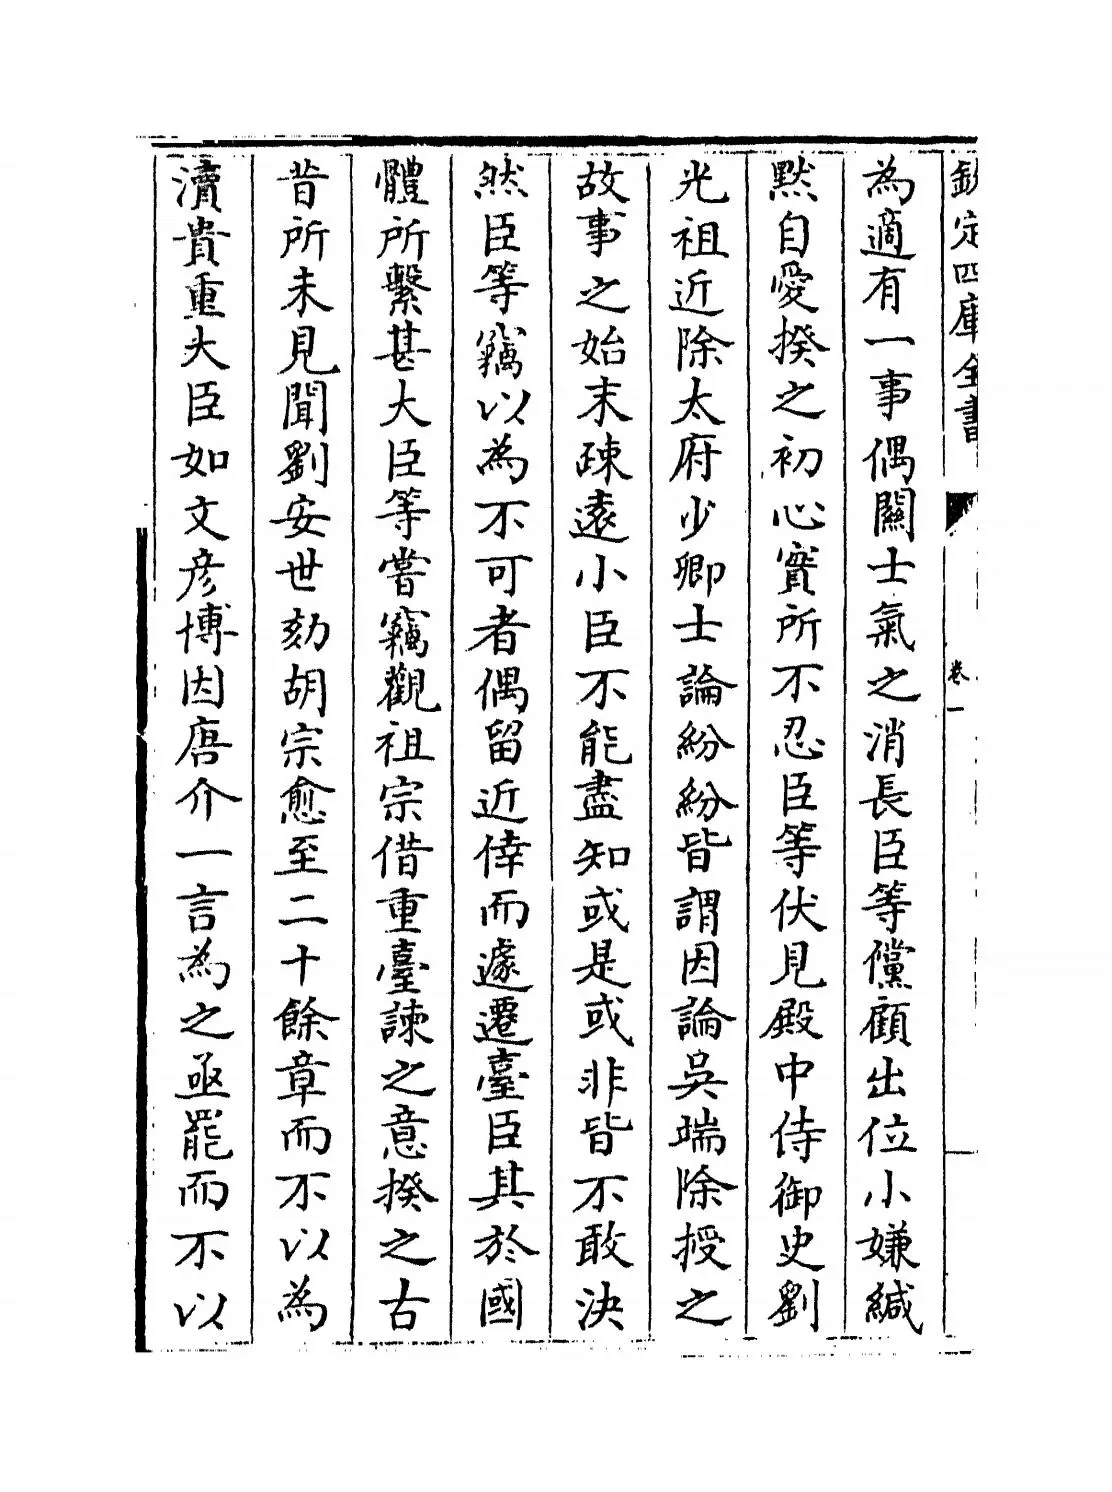 欽定四庫全書
卷一
為適有一事偶闗士氣之消長臣等儻顧出位小嫌緘
黙自愛揆之初心實所不忍臣等伏見殿中侍御史劉
光祖近除太府少卿士論紛紛皆謂因論吳端除授之
故事之始末疎逺小臣不能盡知或是或非皆不敢決
然臣等竊以為不可者偶留近倖而遽遷臺臣其於國
體所繫甚大臣等嘗竊觀祖宗借重臺諫之意揆之古
昔所未見聞劉安世劾胡宗愈至二十餘章而不以為
瀆貴重大臣如文彦博因唐介一言為之亟罷而不以